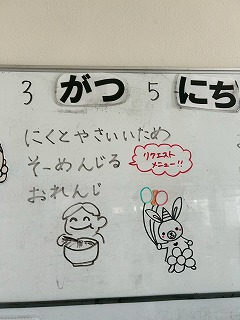 3 がつ 5 にち
にくとやさいいため
そーめんじる
おれんじ
リクエスト
メニュー!!